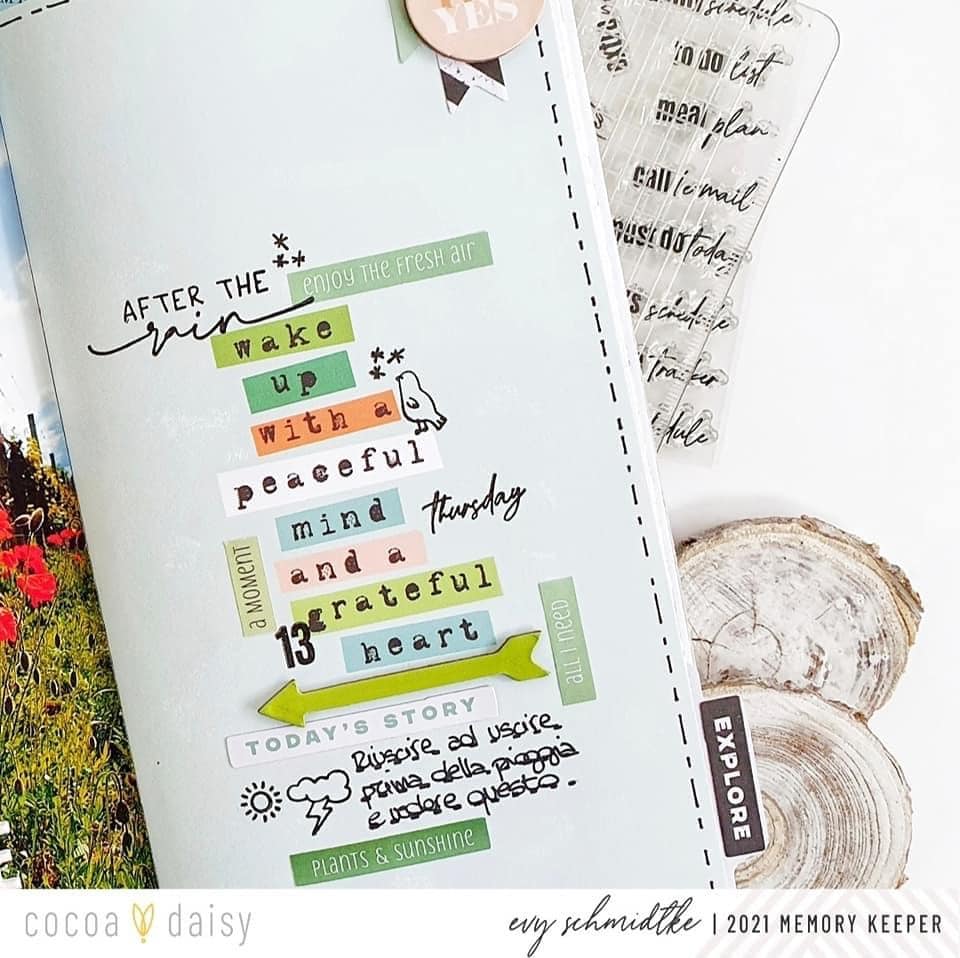 YES
schedule
to do list
meal plan
call / e-mail
must do today
schedule
tracker
AFTER THE
rain
enjoy the fresh air
wake
up
with a
peaceful
mind
thursday
and a
a moment
grateful
13
heart
all i need
TODAY'S STORY
Riuscire ad uscire
prima della pioggia
e vedere questo.
PLANTS & SUNSHINE
EXPLORE
cocoa daisy
evy schmidtke | 2021 MEMORY KEEPER